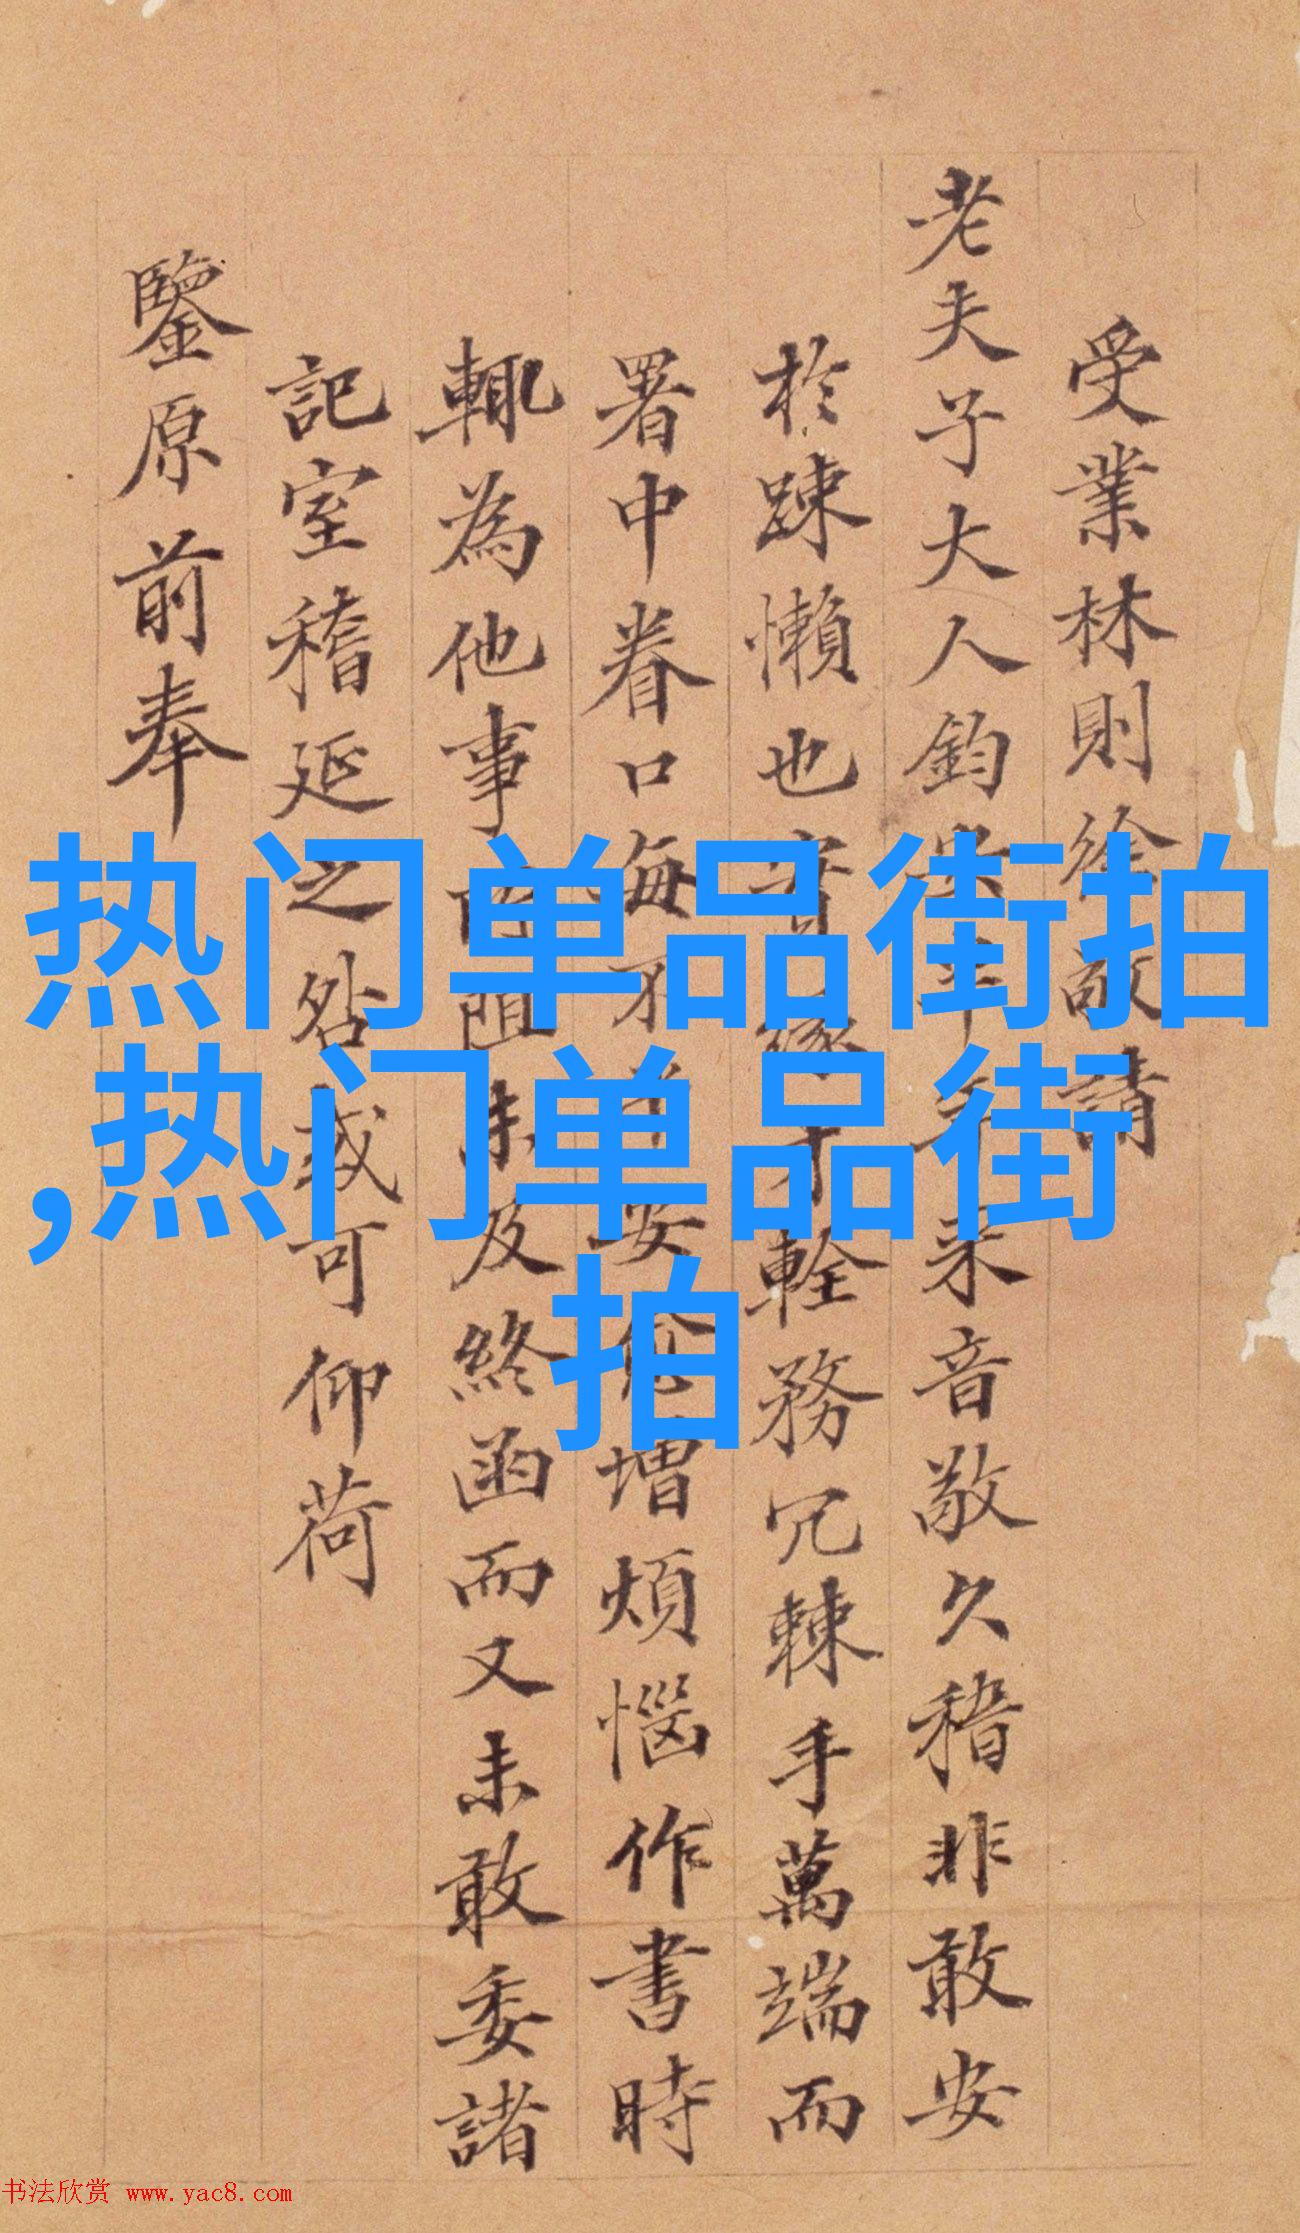 受業林則徐敬請
老夫子大人鈞安半年来音敬久稽非敢安
於踈懶也實緣才輇務冗棘手萬端而
署中眷口每不平安愈增煩惱作書時
輒為他事所阻未及終函而又未敢委諸
記室稽延之咎或可仰荷
鑒原前奉
热门单品街拍
,热门单品街
拍
书法欣赏 www.yac8.com